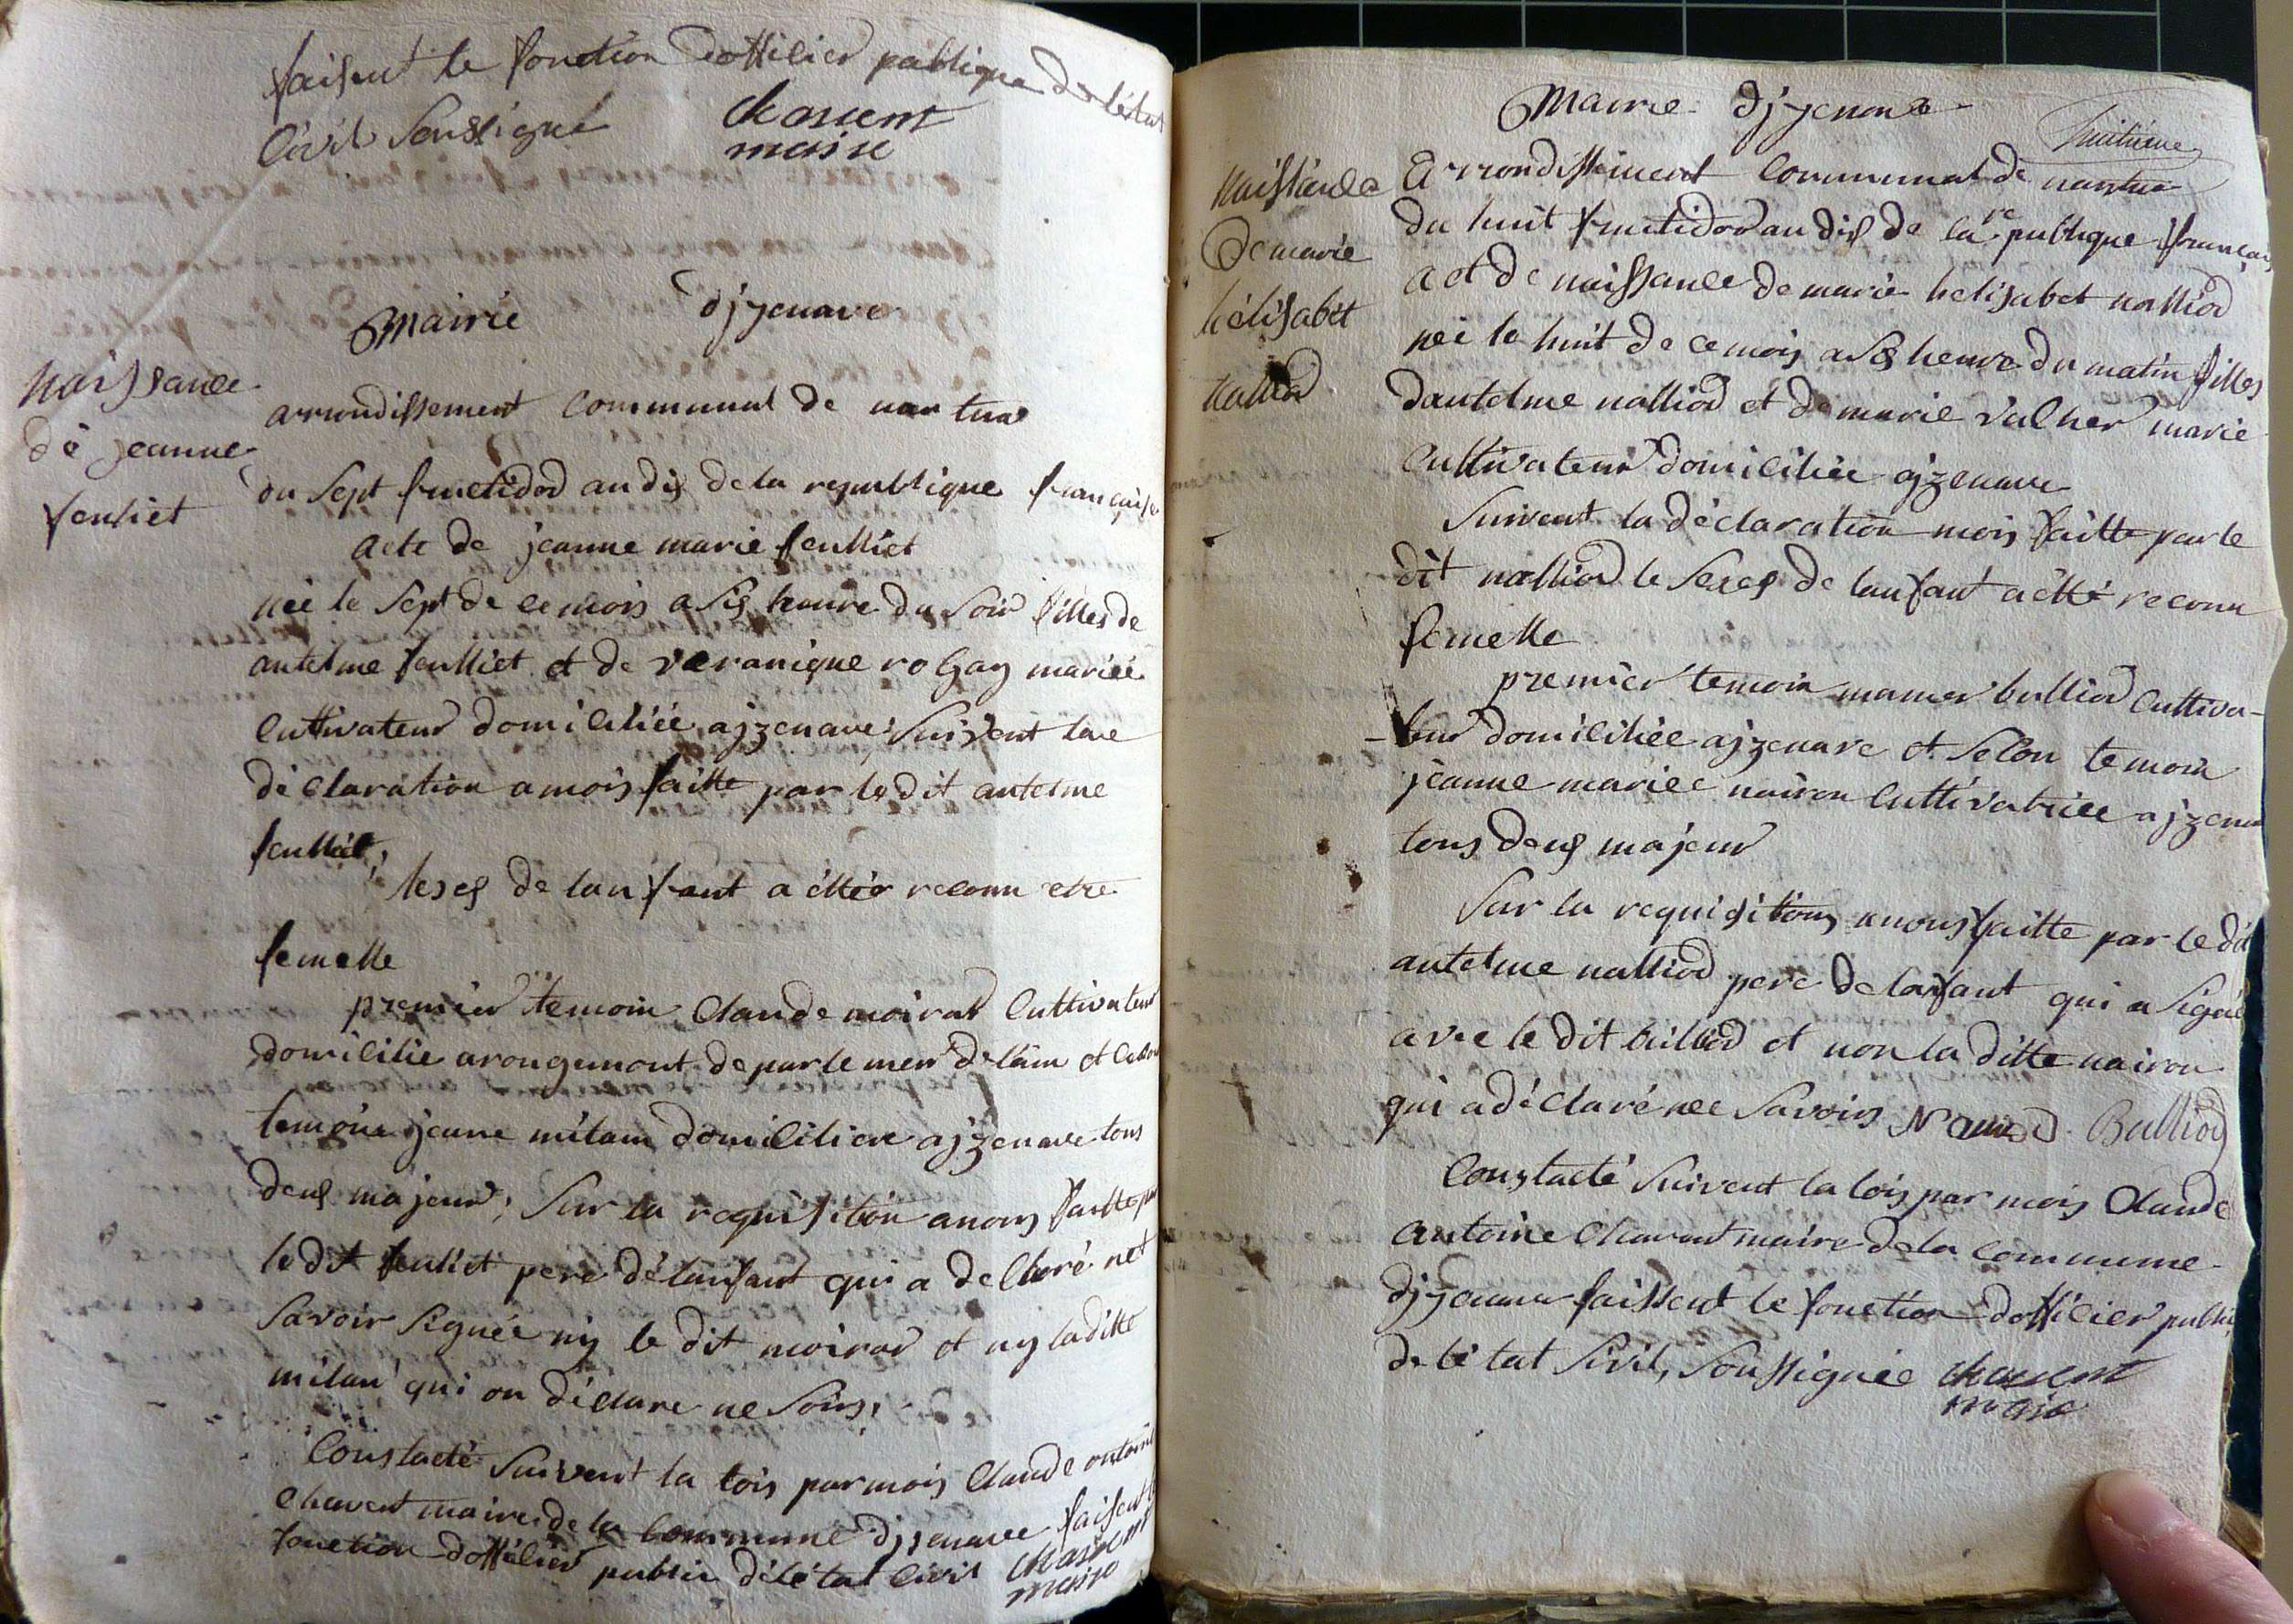 faisent le fonction doffilier publique de létat
Civil Soussigné chavent
maire
Mairie djzenave
Naissance
dé jeanne
feuliet
arrondissement Communal de nantua
du Sept fructidor an dix de la republique francaise
acte de jeanne marie feulliet
née le Sept de ce mois a Six heure du Soir filles de
antelme feulliet et de veranique rogay mariée
Cultivateur domiciliée ajzenave Suivent la
déclaration a mois faitte par le dit antelme
feulliet,
lexes de lanfant a ettér reconu etre
femelle
premier temoin Claude moirod Cultivateur
domicilie arougemont departement de lain et
temoin jeane milan domiciliere ajzenave tous
deux majeur, Sur la requisition anous faitte par
le dit feuliet pere de lanfant qui a decloré net
Savoir Signée ny le dit moirod et ny laditte
milan qui on déclare ne Sois,
Constacté Suivent la lois par mois Claude antoine
chavent maire de la Commune djzenave faisent le
fonction doffilier public dé létat Civil chavent
maire
Mairie djzenave
huitieme
Naissance
De marie
hélisabét
nalliod
Arrondissement Communal de nantua
du huit fructidor an dix de la republique francais
act de naissance de marie helisabet nalliod
née le huit de ce mois a Six heure du matin filles
dantelme nalliod et de marie valher marie
Cultivateur domiciliée ajzenave
Suivent la déclaration mois faitte par le
dit nalliod le Sexes de lanfant a étté reconu
femelle
premier temoin bulliod Cultiva-
-teur domiciliée ajzenave et Selon temoin
jeanne mariee nairon Cultivatrice ajzenave
tous deux majeur
Sur la requisitions anous faitte par le dit
antelme nalliod pere de lanfant qui a Signé
avec le dit bulliod et non la ditte nairon
qui a déclaré nee Savoirs Bulliod
Constacté Suivent la lois par mois Claude
antoine Chavent maire de la commune
djzenave faissent le fonction doffilier public
de lé tat Sivil, Soussignée chavent
maire